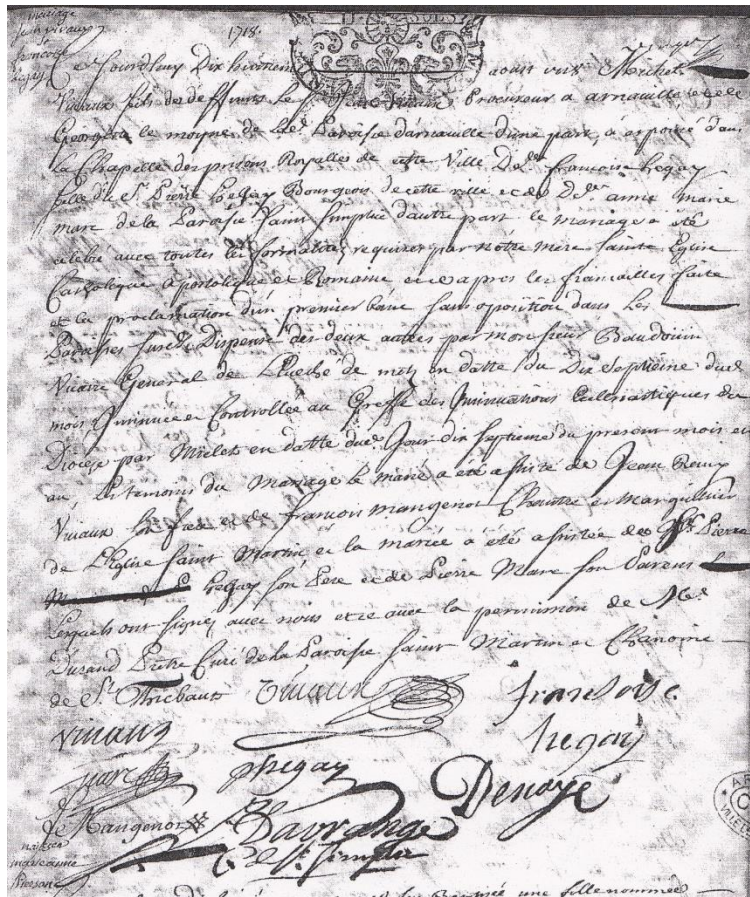 mariage
françoise
hegay
1718.
Cejourdhuy Dix huitieme aoust
Vivaux fils de deffunts Procureur a arnaville et de
Georgette le moyne de lad. Paroisse d'arnaville d'une part, a epousé dans
la Chapelle des prisons Royalles de cette Ville Dlle. francoise hegay
fille du Sr. Pierre hegay Bourgeois de cette ville et de Dlle. anne marie
marc de la Paroisse Saint Simplice d'autre part le mariage a été
celebré avec toutes les formalités requises par notre mere Sainte Eglise
Catholique Apostolique et Romaine et ce apres les fiancailles faite
et la proclamation d'un premier banc sans oposition dans les
Paroisses Dispensé des deux autres par monsieur Baudouin
Vicaire General de L'Eveché de metz en datte du Dix Septieme dud.
mois Insinuée et Controllée au Greffe des Insinuations Ecclesiastiques du
Diocese par Mielet en datte dud. Jour dix septieme du present mois et
an, Les temoins du Mariage le marié a eté assisté de Jean
Vivaux son frere et de francois mangenot Chantre et Marguillier
de L'Eglise Saint Martin et la mariée a été assistée de Pierre
hegay son Pere et de Pierre Marc son Parent
Lesquels ont signez avec nous et ce avec la permission de Mr.
Durand Prêtre Curé de la Paroisse Saint Martin et Chanoine
de St. Thiebaut Vivaux francoise
Vivaux hegay
marc phegay
f Mangenot Lavrange Denoyé
C. de St. Simplice
une fille nommée